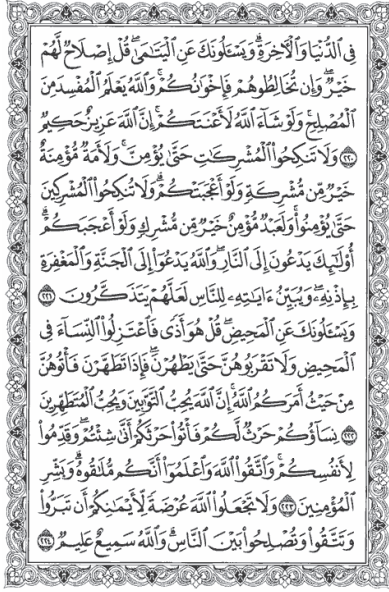 فِى ٱلدُّنْيَا وَٱلْءَاخِرَةِ ۗ وَيَسْـَٔلُونَكَ عَنِ ٱلْيَتَـٰمَىٰ ۖ قُلْ إِصْلَاحٌ لَّهُمْ
خَيْرٌ ۖ وَإِن تُخَالِطُوهُمْ فَإِخْوَٰنُكُمْ ۚ وَٱللَّهُ يَعْلَمُ ٱلْمُفْسِدَ مِنَ
ٱلْمُصْلِحِ ۚ وَلَوْ شَآءَ ٱللَّهُ لَأَعْنَتَكُمْ ۚ إِنَّ ٱللَّهَ عَزِيزٌ حَكِيمٌ
٢٢٠ وَلَا تَنكِحُوا۟ ٱلْمُشْرِكَـٰتِ حَتَّىٰ يُؤْمِنَّ ۚ وَلَأَمَةٌ مُّؤْمِنَةٌ
خَيْرٌ مِّن مُّشْرِكَةٍ وَلَوْ أَعْجَبَتْكُمْ ۗ وَلَا تُنكِحُوا۟ ٱلْمُشْرِكِينَ
حَتَّىٰ يُؤْمِنُوا۟ ۚ وَلَعَبْدٌ مُّؤْمِنٌ خَيْرٌ مِّن مُّشْرِكٍ وَلَوْ أَعْجَبَكُمْ ۗ
أُو۟لَـٰٓئِكَ يَدْعُونَ إِلَى ٱلنَّارِ ۖ وَٱللَّهُ يَدْعُوٓا۟ إِلَى ٱلْجَنَّةِ وَٱلْمَغْفِرَةِ
بِإِذْنِهِۦ ۖ وَيُبَيِّنُ ءَايَـٰتِهِۦ لِلنَّاسِ لَعَلَّهُمْ يَتَذَكَّرُونَ ٢٢١
وَيَسْـَٔلُونَكَ عَنِ ٱلْمَحِيضِ ۖ قُلْ هُوَ أَذًى فَٱعْتَزِلُوا۟ ٱلنِّسَآءَ فِى
ٱلْمَحِيضِ ۖ وَلَا تَقْرَبُوهُنَّ حَتَّىٰ يَطْهُرْنَ ۖ فَإِذَا تَطَهَّرْنَ فَأْتُوهُنَّ
مِنْ حَيْثُ أَمَرَكُمُ ٱللَّهُ ۚ إِنَّ ٱللَّهَ يُحِبُّ ٱلتَّوَّٰبِينَ وَيُحِبُّ ٱلْمُتَطَهِّرِينَ
٢٢٢ نِسَآؤُكُمْ حَرْثٌ لَّكُمْ فَأْتُوا۟ حَرْثَكُمْ أَنَّىٰ شِئْتُمْ ۖ وَقَدِّمُوا۟
لِأَنفُسِكُمْ ۚ وَٱتَّقُوا۟ ٱللَّهَ وَٱعْلَمُوٓا۟ أَنَّكُم مُّلَـٰقُوهُ ۗ وَبَشِّرِ
ٱلْمُؤْمِنِينَ ٢٢٣ وَلَا تَجْعَلُوا۟ ٱللَّهَ عُرْضَةً لِّأَيْمَـٰنِكُمْ أَن تَبَرُّوا۟
وَتَتَّقُوا۟ وَتُصْلِحُوا۟ بَيْنَ ٱلنَّاسِ ۗ وَٱللَّهُ سَمِيعٌ عَلِيمٌ ٢٢٤